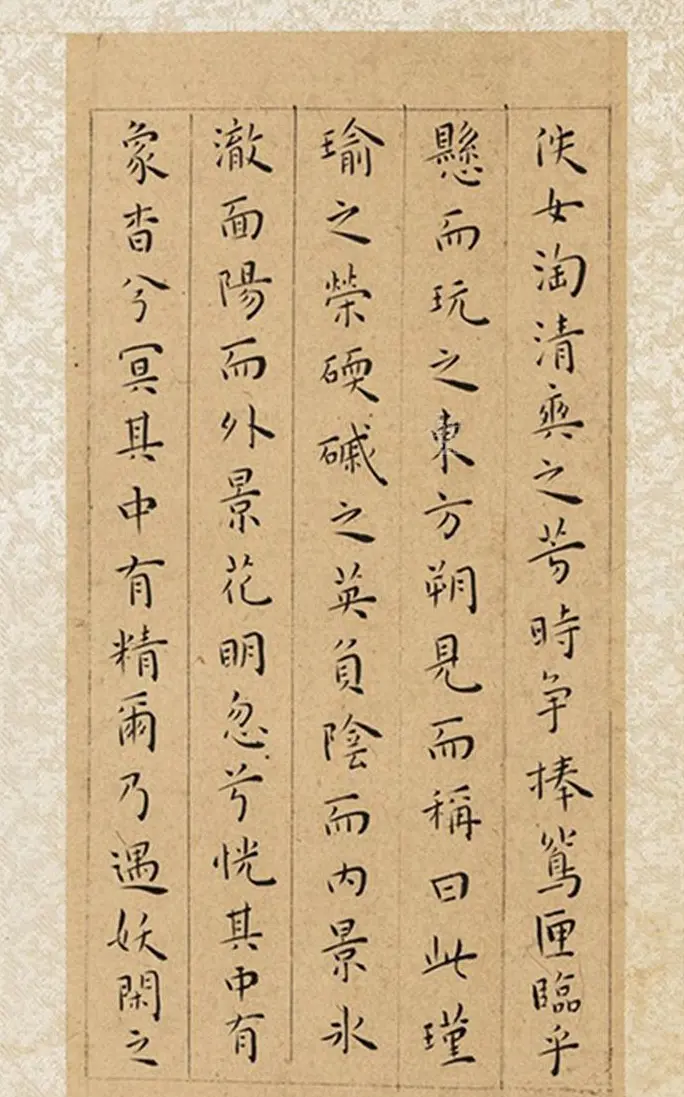 佚女淘清與之芳時爭捧鴛匣臨乎
懸而玩之東方朔見而稱曰此瑾
瑜之榮碝磩之英負陰而內景冰
澈面陽而外景花明忽兮恍其中有
象杳兮冥其中有精爾乃遇妖閑之